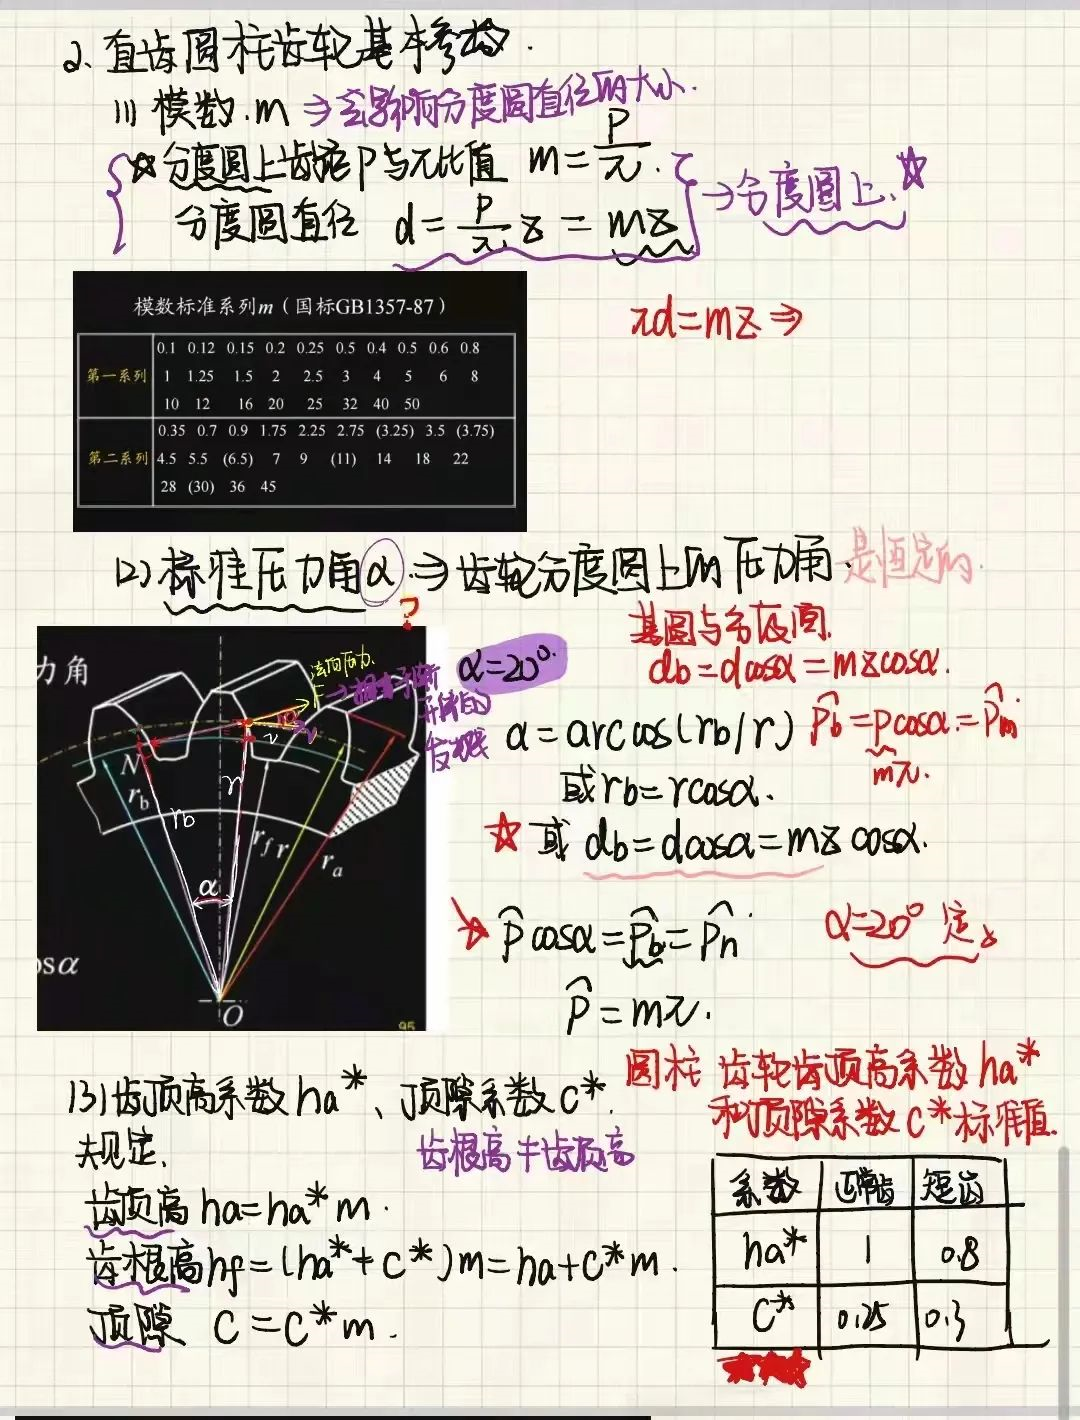 2、直齿圆柱齿轮基本参数.
(1) 模数.m ⇒会影响分度圆直径的大小.
☆分度圆上齿距P与π比值 m=P/π.
分度圆直径 d=P/π z=mz →分度圆上.☆
模数标准系列m（国标GB1357-87）
πd=mz⇒
第一系列 0.1 0.12 0.15 0.2 0.25 0.5 0.4 0.5 0.6 0.8
1 1.25 1.5 2 2.5 3 4 5 6 8
10 12 16 20 25 32 40 50
第二系列 0.35 0.7 0.9 1.75 2.25 2.75 (3.25) 3.5 (3.75)
4.5 5.5 (6.5) 7 9 (11) 14 18 22
28 (30) 36 45
(2)标准压力角α.⇒齿轮分度圆上的压力角.是恒定的.
?
基圆与分度圆.
db=dcosα=mzcosα.
力角
法向压力
F
α=20°.
v
N
rb
rb
r
rf
r
ra
α
osα
O
95
α=arccos(rb/r)
Pb=pcosα=Pn
mπ.
或rb=rcosα.
☆或 db=dcosα=mzcosα.
Pcosα=Pb=Pn
α=20° 定。
P=mπ.
(3)齿顶高系数ha*、顶隙系数c*.
圆柱齿轮齿顶高系数ha*
和顶隙系数c*标准值.
规定.
齿根高≠齿顶高
齿顶高 ha=ha*m.
齿根高hf=(ha*+c*)m=ha+c*m.
顶隙 C=C*m.
系数 正常齿 短齿
ha* 1 0.8
C* 0.25 0.3